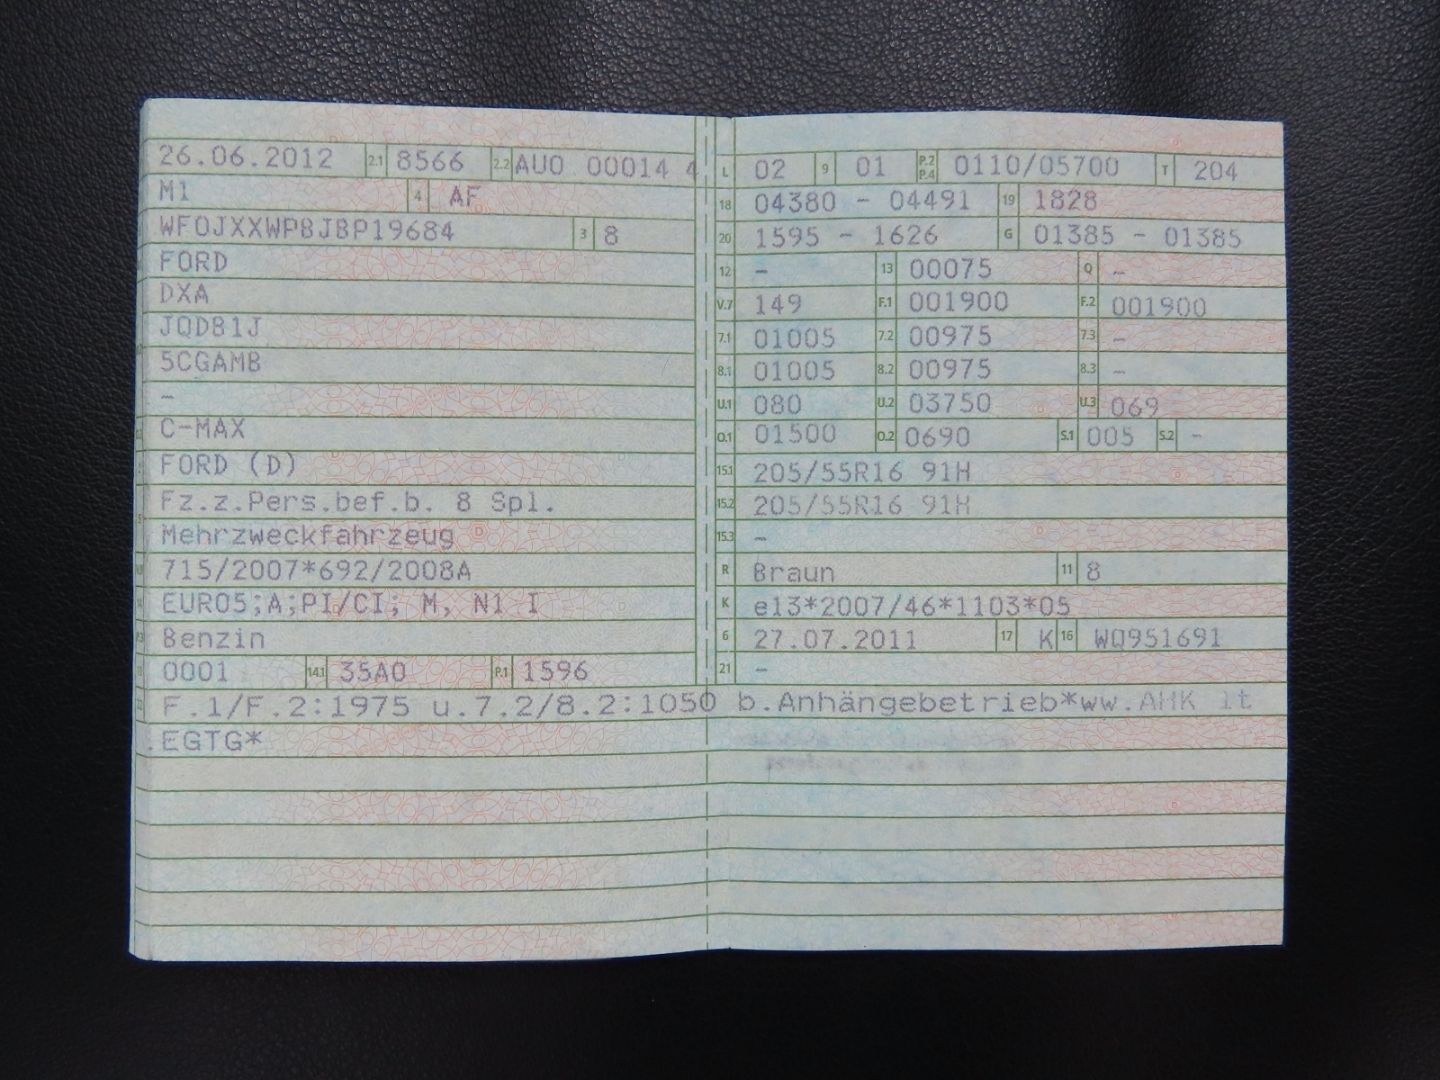 26.06.2012 2.1 8566 2.2 AUO 00014 4
M1 4 AF
WF0JXXWPBJBP19684 3 8
FORD
DXA
JQD81J
5CGAMB
–
C-MAX
FORD (D)
Fz.z.Pers.bef.b. 8 Spl.
Mehrzweckfahrzeug
715/2007*692/2008A
EURO5;A;PI/CI; M, N1 I
Benzin
0001 14.1 35A0 P.1 1596
L 02 9 01 P.2 P.4 0110/05700 T 204
18 04380 - 04491 19 1828
20 1595 - 1626 G 01385 - 01385
12 – 13 00075 Q –
V.7 149 F.1 001900 F.2 001900
7.1 01005 7.2 00975 7.3 –
8.1 01005 8.2 00975 8.3 –
U.1 080 U.2 03750 U.3 069
O.1 01500 O.2 0690 S.1 005 S.2 –
15.1 205/55R16 91H
15.2 205/55R16 91H
15.3 –
R Braun 11 8
K e13*2007/46*1103*05
6 27.07.2011 17 K 16 WQ951691
21 –
F.1/F.2:1975 u.7.2/8.2:1050 b.Anhängebetrieb*ww.AHK lt
.EGTG*